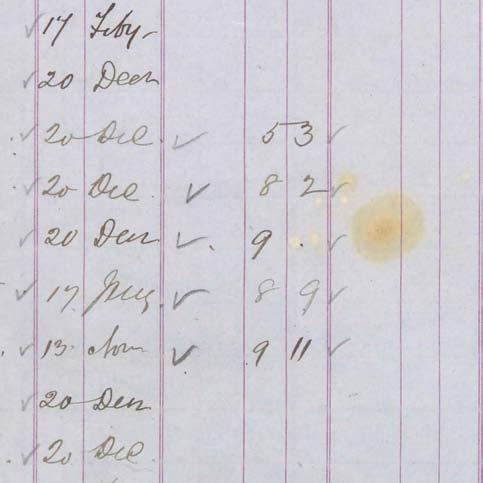 ✓ 17 Feby
✓ 20 Decr
✓ 20 Dec ✓ 5 3 ✓
✓ 20 Dec ✓ 8 2 ✓
✓ 20 Decr ✓ 9 . ✓
✓ 17 ✓ 8 9 ✓
✓ 13 Nov ✓ 9 11 ✓
✓ 20 Decr
✓ 20 Dec